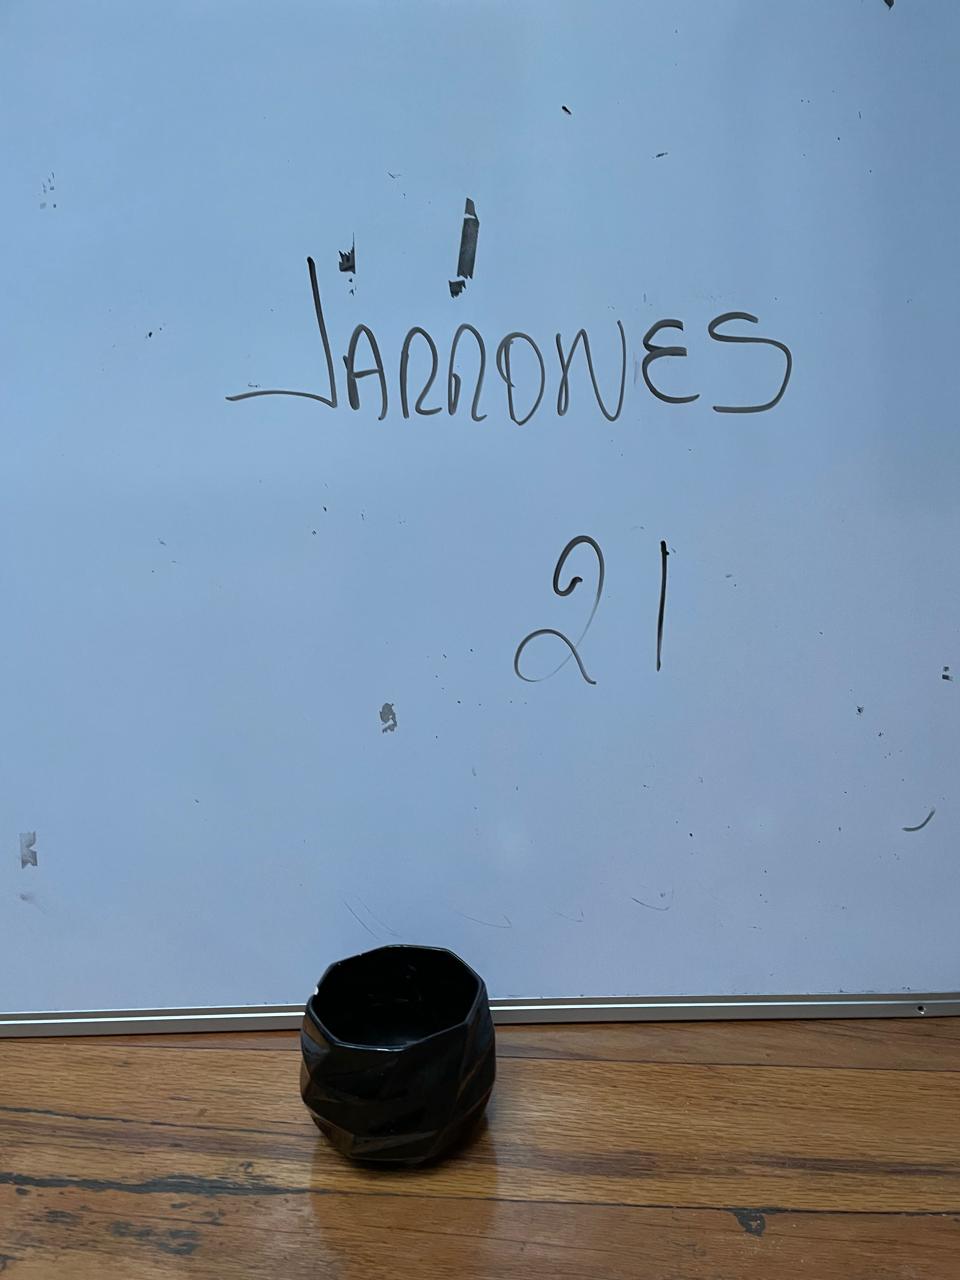 JARRONES
21